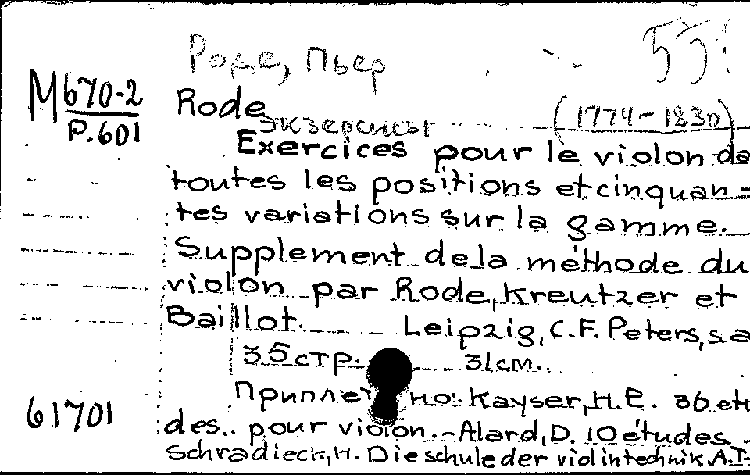 Роде, Пьер
55
М670-2
Р.601
Rode
(1774-1830)
экзерсисы
Exercices pour le violon da
toutes les positions et cinquan=
tes variations sur la gamme.
Supplement de la méthode du
violon par Rode, Kreutzer et
Baillot. Leipzig, C.F. Peters, s.a
35 стр. 31 см.
Приплет но: Kayser, H.E. 36 et
61701
des.. pour violon.-Alard, D. 10 études
Schradieck, H. Die schule der violintechnik. A.T.